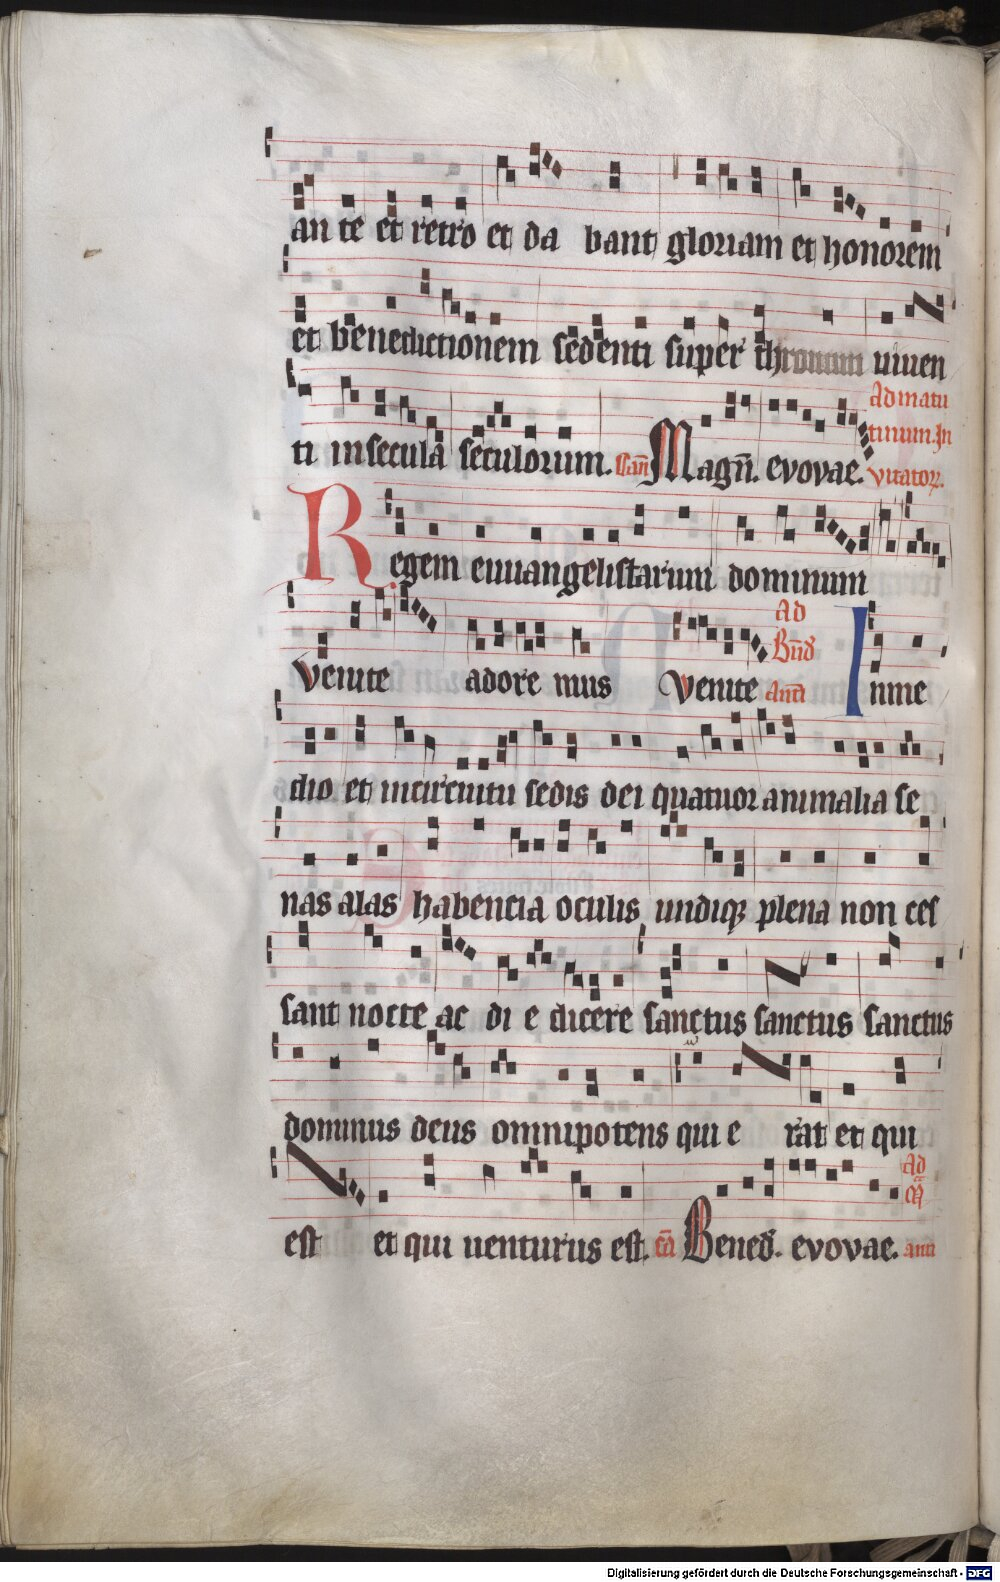 an te et retro et da bant gloriam et honorem
et benedictionem sedenti super thronum uiuen
ti in secula seculorum. Magn̄. evovae. Ad matu
tinum. In
vitator̄.
Regem euuangelistarum dominum
Venite adore mus Venite Ad
Bn̄d
an̄ Inme
dio et in circuitu sedis dei quatuor animalia se
nas alas habencia oculis undiqꝫ plena non ces
sant nocte ac di e dicere sanctus sanctus sanctus
dominus deus omnipotens qui e rat et qui
est et qui uenturus est. cā Bened. evovae. Ad
an̄
Digitalisierung gefördert durch die Deutsche Forschungsgemeinschaft - DFG